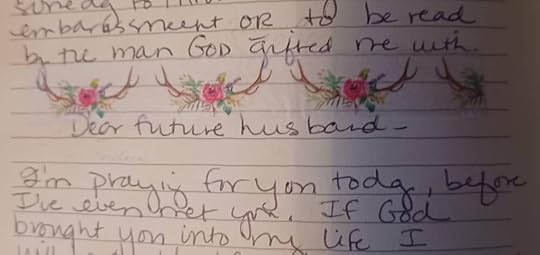 embarassment OR to be read
by the man GOD gifted me with.
Dear future husband -
I'm praying for you today, before
I've even met you. If God
brought you into my life I